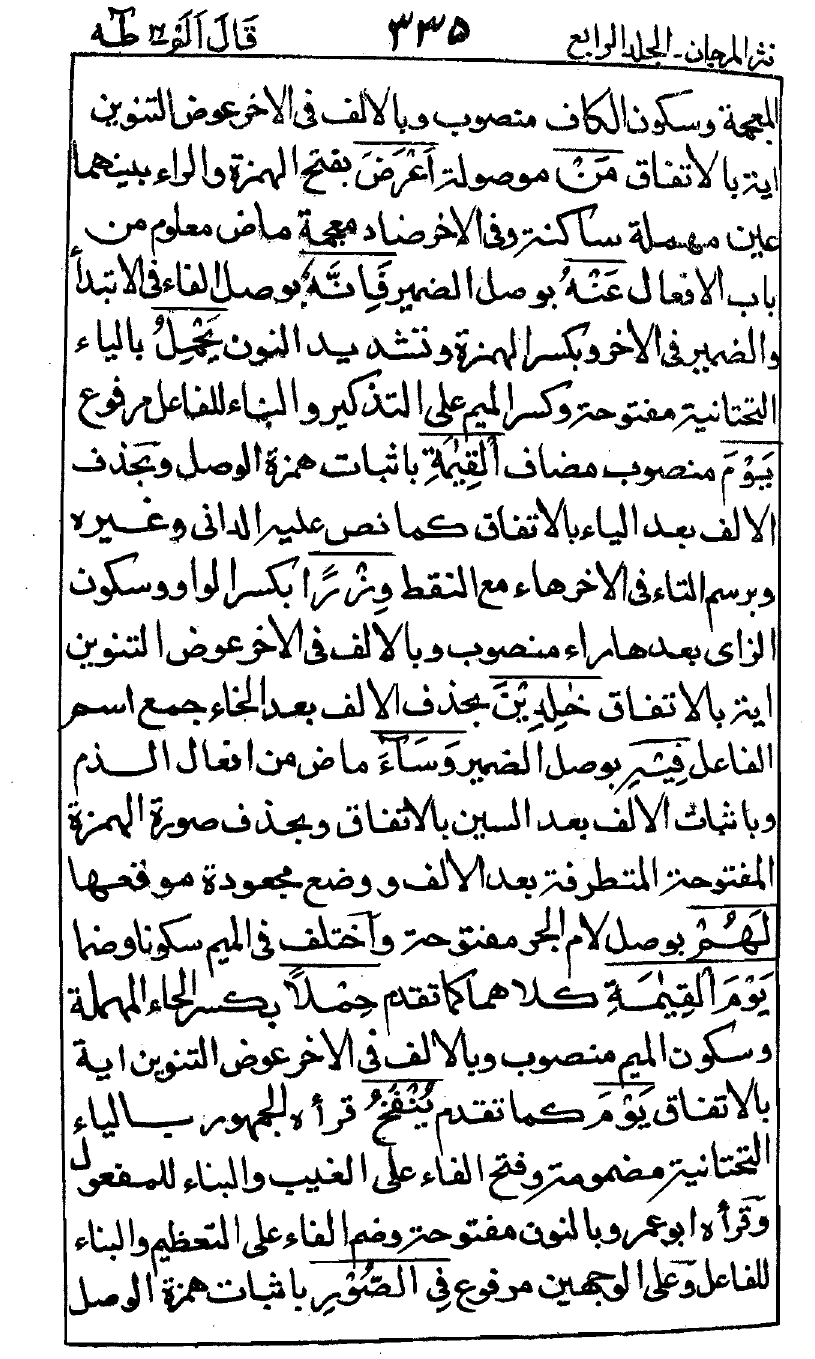 نثر المرجان ـ المجلد الرابع ٣٣٥ قَالَ اَلَمْ ١٦ طٰهٰ
المعجمة وسكون الكاف منصوب وبالالف فى الاخر عوض التنوين
اية بالاتفاق مَنْ موصولة اَعْرَضَ بفتح الهمزة والراء بينهما
عين مهملة ساكنة وفى الاخر ضاد معجمة ماض معلوم من
باب الافعال عَنْهُ بوصل الضمير فَاِنَّهٗ بوصل الفاء فى الابتدأ
والضمير فى الاخر وبكسر الهمزة وتشديد النون يَحْمِلُ بالياء
التحتانية مفتوحة وكسر الميم على التذكير والبناء للفاعل مرفوع
يَوْمَ منصوب مضاف اَلْقِيٰمَةِ باثبات همزة الوصل وبحذف
الالف بعد الياء بالاتفاق كما نص عليه الدانى وغيره
وبرسم التاء فى الاخر هاء مع النقط وِزْرًا بكسر الواو وسكون
الزاى بعدها راء منصوب وبالالف فى الاخر عوض التنوين
اية بالاتفاق خٰلِدِيْنَ بحذف الالف بعد الخاء جمع اسم
الفاعل فِيْهِ بوصل الضمير وَسَآءَ ماض من افعال الذم
وباثبات الالف بعد السين بالاتفاق وبحذف صورة الهمزة
المفتوحة المتطرفة بعد الالف ووضع مجعودة موقعها
لَهُمْ بوصل لام الجر مفتوحة واختلف فى الميم سكونا وضما
يَوْمَ الْقِيٰمَةِ كلاهما كما تقدم حِمْلًا بكسر الحاء المهملة
وسكون الميم منصوب وبالالف فى الاخر عوض التنوين اية
بالاتفاق يَوْمَ كما تقدم يُنْفَخُ قرأه الجمهور بالياء
التحتانية مضمومة وفتح الفاء على الغيب والبناء للمفعول
وقرأه ابو عمرو بالنون مفتوحة وضم الفاء على التعظيم والبناء
للفاعل وعلى الوجهين مرفوع فِي الصُّوْرِ باثبات همزة الوصل